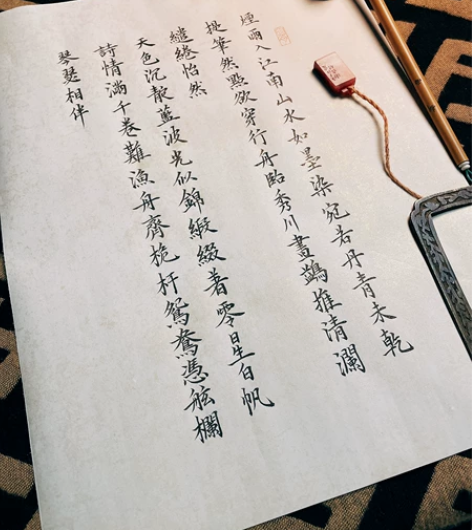 煙雨入江南山水如墨染宛若丹青未乾
提筆然點欲穿行舟臨秀川畫鷁推清瀾
繾綣怡然
天色沉靛藍波光似錦緞綴著零星白帆
詩情滿千卷難漁舟齊桅杆鴛鴦憑舷欄
琴瑟相伴